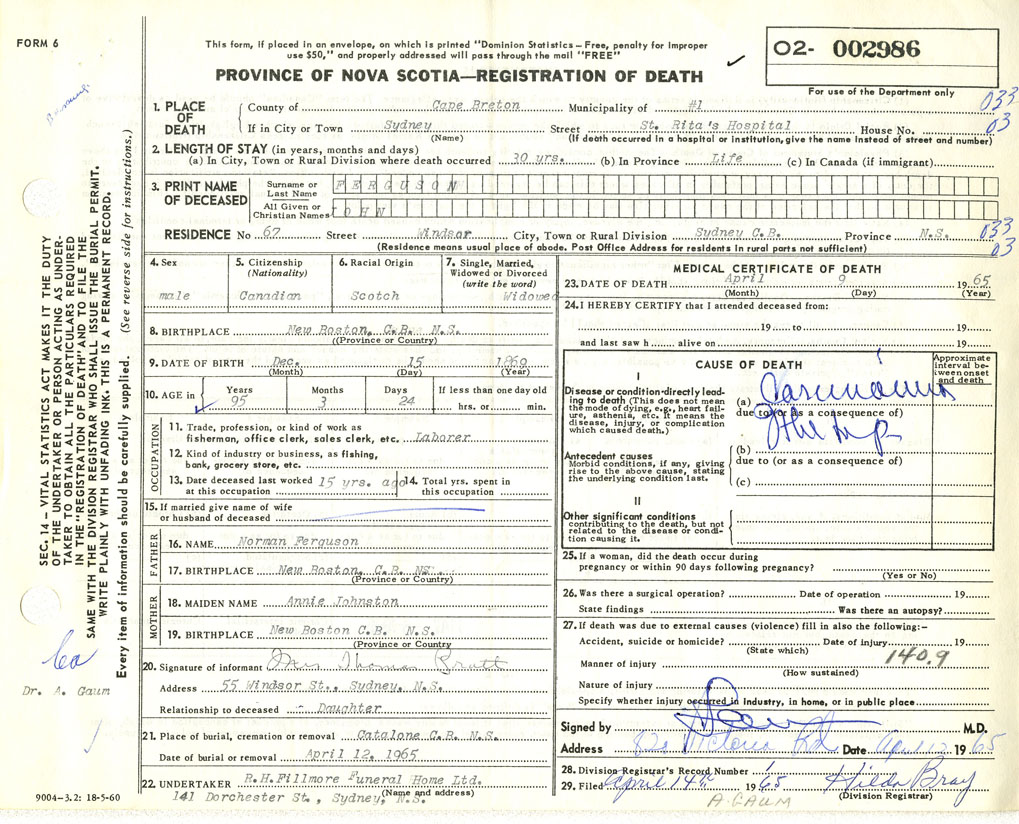 FORM 6
This form, if placed in an envelope, on which is printed "Dominion Statistics—Free, penalty for improper
use $50," and properly addressed will pass through the mail "FREE"
PROVINCE OF NOVA SCOTIA—REGISTRATION OF DEATH
02- 002986
For use of the Department only
033
03
1. PLACE OF DEATH
County of Cape Breton Municipality of #1
If in City or Town Sydney Street St. Rita's Hospital House No.
(Name) (If death occurred in a hospital or institution, give the name instead of street and number)
2. LENGTH OF STAY (in years, months and days)
(a) In City, Town or Rural Division where death occurred 30 yrs. (b) In Province Life (c) In Canada (if immigrant)
3. PRINT NAME OF DECEASED
Surname or Last Name FERGUSON
All Given or Christian Names JOHN
RESIDENCE No 67 Street Windsor City, Town or Rural Division Sydney C.B. Province N.S.
(Residence means usual place of abode. Post Office Address for residents in rural parts not sufficient)
033
03
4. Sex
male
5. Citizenship
(Nationality)
Canadian
6. Racial Origin
Scotch
7. Single, Married,
Widowed or Divorced
(write the word)
Widowed
8. BIRTHPLACE New Boston, C.B. N.S.
(Province or Country)
9. DATE OF BIRTH Dec. 15 1869
(Month) (Day) (Year)
10. AGE in
Years Months Days If less than one day old
95 3 24 hrs. or min.
OCCUPATION
11. Trade, profession, or kind of work as
fisherman, office clerk, sales clerk, etc. Laborer
12. Kind of industry or business, as fishing,
bank, grocery store, etc.
13. Date deceased last worked at this occupation 15 yrs. ago
14. Total yrs. spent in this occupation
15. If married give name of wife
or husband of deceased
FATHER
16. NAME Norman Ferguson
17. BIRTHPLACE New Boston, C.B. NS.
(Province or Country)
MOTHER
18. MAIDEN NAME Annie Johnston
19. BIRTHPLACE New Boston C.B. N.S.
(Province or Country)
20. Signature of informant Mrs Thomas Bratt
Address 55 Windsor St., Sydney, N.S.
Relationship to deceased - Daughter
21. Place of burial, cremation or removal Catalone C.B. N.S.
Date of burial or removal April 12, 1965
22. UNDERTAKER R.H. Fillmore Funeral Home Ltd.
(Name and address)
141 Dorchester St., Sydney, N.S.
MEDICAL CERTIFICATE OF DEATH
23. DATE OF DEATH April 9 1965
(Month) (Day) (Year)
24. I HEREBY CERTIFY that I attended deceased from:
19 to 19
and last saw h alive on 19
CAUSE OF DEATH
Approximate
interval between onset
and death
I
Disease or condition directly leading to death (This does not mean
the mode of dying, e.g., heart failure, asthenia, etc. It means the
disease, injury, or complication
which caused death.)
(a) Carcinoma
due to (or as a consequence of)
of the lip
Antecedent causes
Morbid conditions, if any, giving
rise to the above cause, stating
the underlying condition last.
(b)
due to (or as a consequence of)
(c)
II
Other significant conditions
contributing to the death, but not
related to the disease or condition causing it.
25. If a woman, did the death occur during
pregnancy or within 90 days following pregnancy?
(Yes or No)
26. Was there a surgical operation? Date of operation 19
State findings Was there an autopsy?
27. If death was due to external causes (violence) fill in also the following:-
Accident, suicide or homicide? Date of injury 19
(State which)
140.9
Manner of injury
(How sustained)
Nature of injury
Specify whether injury occurred in industry, in home, or in public place
Signed by M.D.
Address Victoria Rd Date April 12 1965
28. Division Registrar's Record Number
29. Filed April 14th 1965 Hilda Bray
(Division Registrar)
A GAUM
SEC. 14—VITAL STATISTICS ACT MAKES IT THE DUTY
OF THE UNDERTAKER OR PERSON ACTING AS UNDERTAKER TO OBTAIN ALL THE PARTICULARS REQUIRED
IN THE "REGISTRATION OF DEATH" AND TO FILE THE
SAME WITH THE DIVISION REGISTRAR WHO SHALL ISSUE THE BURIAL PERMIT.
WRITE PLAINLY WITH UNFADING INK. THIS IS A PERMANENT RECORD.
Every item of information should be carefully supplied. (See reverse side for instructions.)
Ca
Dr. A. Gaum
9004-3.2: 18-5-60